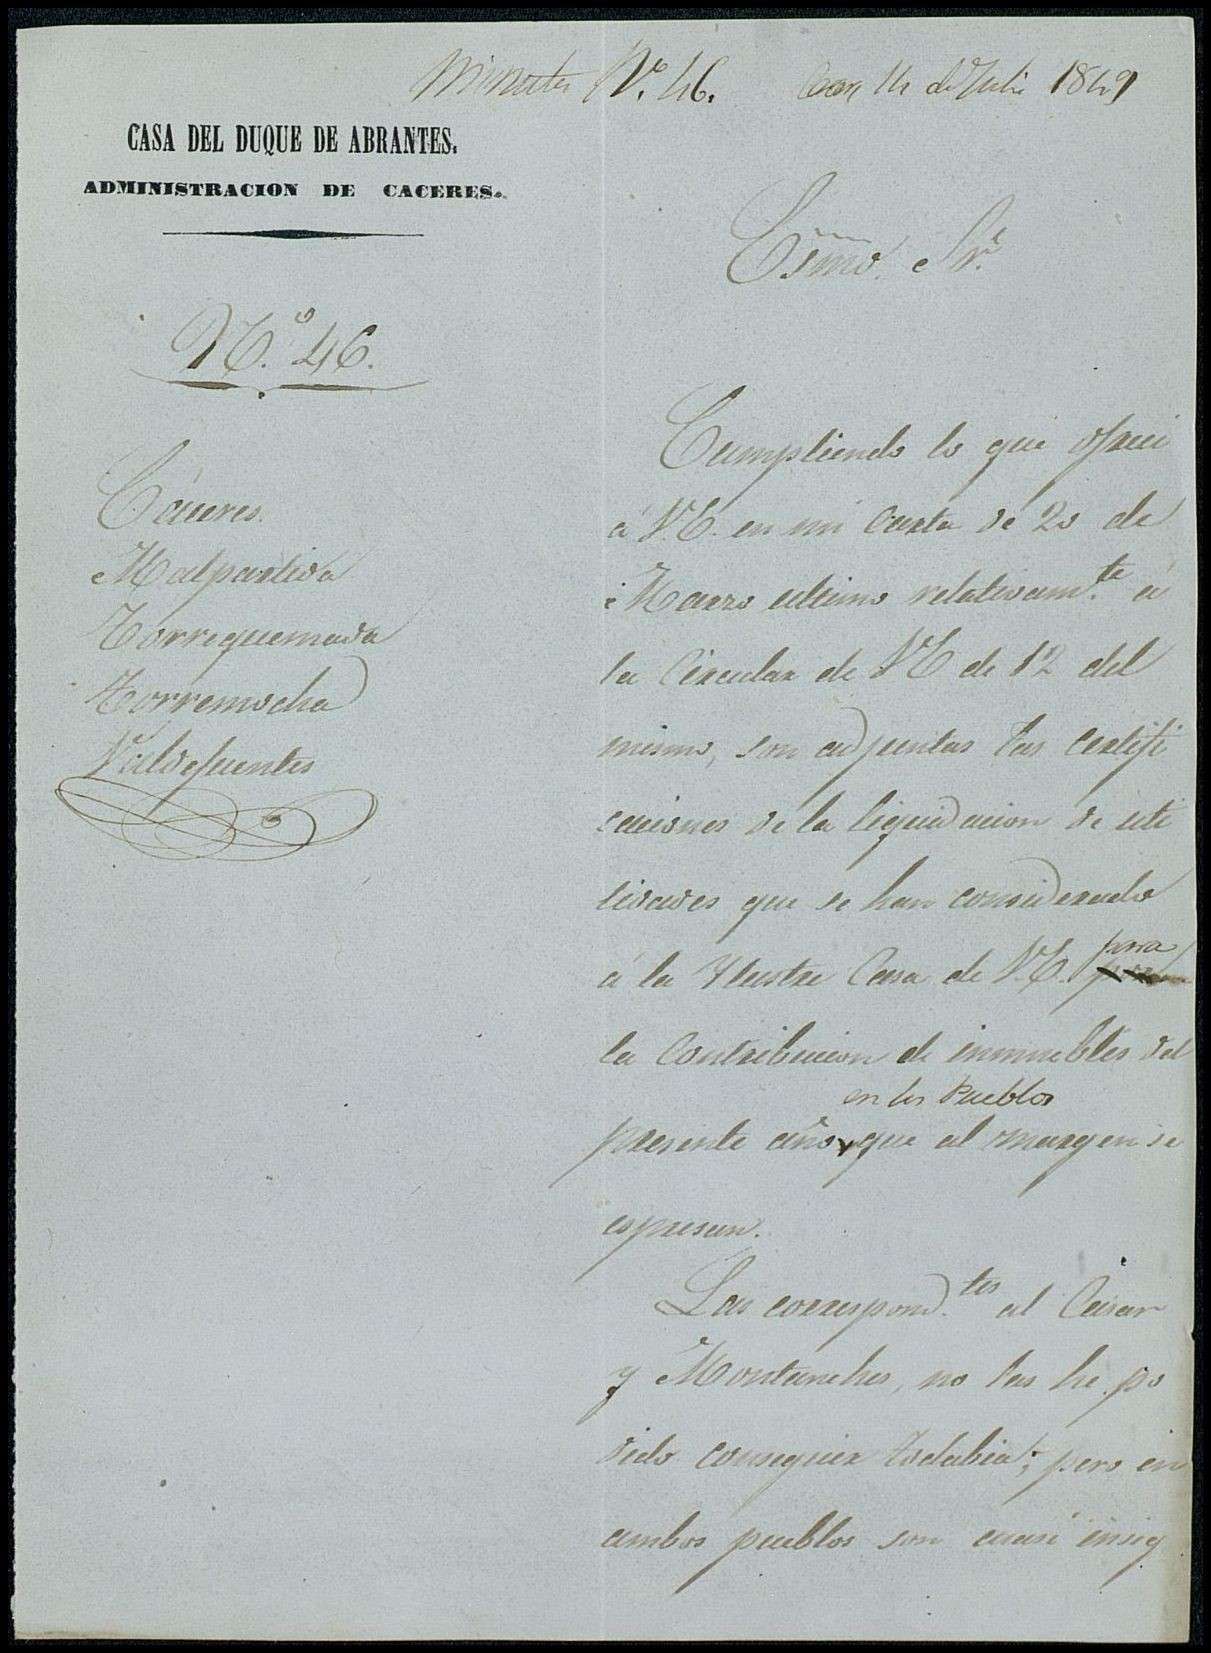 Minuta Nº. 46. Cac. 14 de Julio 1849
CASA DEL DUQUE DE ABRANTES.
ADMINISTRACION DE CACERES.
Nº. 46.
Cáceres.
Malpartida
Torrequemada
Torremocha
Valdefuentes
Esmo. Sr.
Cumpliendo lo que ofreci
á V.E. en mi Carta de 20 de
Marzo ultimo relativamte. á
la Circular de V E de 12 del
mismo, son adjuntas las certifi
caciones de la liquidacion de uti
lidades que se han considerado
á la Ylustre Casa de V.E. para
la Contribucion de inmuebles del
en los Pueblos
presente año, que al margen se
espresan.
Las correspondtes. al Casar
y Montanches, no las he po
dido conseguir todabia; pero en
ambos pueblos son cuasi insig